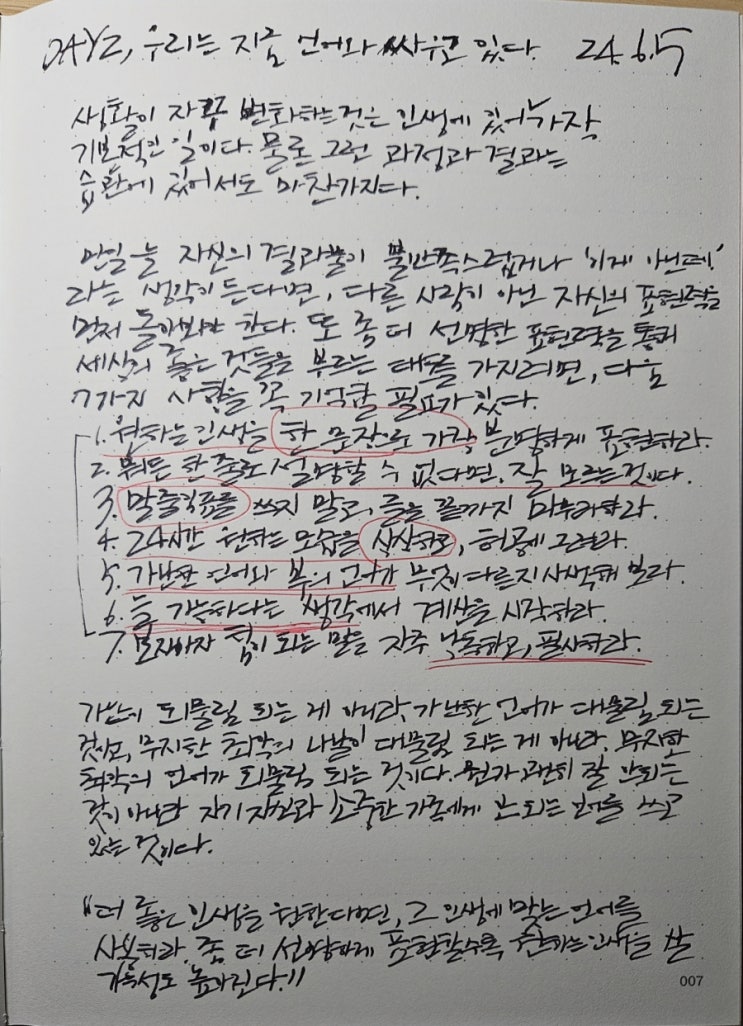 DAY2, 우리는 지금 언어와 싸우고 있다. 24. 6. 5
상황이 자주 변화하는 것은 인생에 있어 가장
기본적인 일이다. 물론 그런 과정과 결과는
습관에 있어서도 마찬가지다.
만일 늘 자신의 결과물이 불만족스럽거나 '이게 아닌데!'
라는 생각이 든다면, 다른 사람이 아닌 자신의 표현력을
먼저 돌아봐야 한다. 또 좀 더 선명한 표현력을 통해
세상의 좋은 것들을 부르는 태도를 가지려면, 다음
7가지 사항을 꼭 기억할 필요가 있다.
1. 원하는 인생을 한 문장으로 가장 분명하게 표현하라.
2. 뭐든 한 줄로 설명할 수 없다면, 잘 모르는 것이다.
3. 말줄임표를 쓰지 말고, 글을 끝까지 마무리하라.
4. 24시간 원하는 모습을 상상하고, 허공에 그려라.
5. 가난한 언어와 부의 언어가 무엇이 다른지 사색해 보라.
6. 늘 가능하다는 생각에서 계산을 시작하라.
7. 보자마자 힘이 되는 말을 자주 낭독하고, 필사하라.
가난이 되물림 되는 게 아니라, 가난한 언어가 대물림 되는
것이고, 무지한 최악의 나날이 대물림 되는 게 아니라, 무지한
최악의 언어가 되물림 되는 것이다. 뭔가 괜히 잘 안되는
것이 아니라 자기 자신과 소중한 가족에게 안 되는 언어를 쓰고
있는 것이다.
"더 좋은 인생을 원한다면, 그 인생에 맞는 언어를
사용하라. 좀 더 선명하게 표현할수록 원하는 인생을 살
가능성도 높아진다."
007